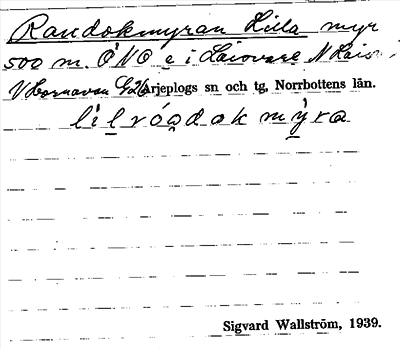 Randokmyran Lilla myr
500 m. ÖNO e i Laisvare N Lais
V Hornavan G26 Arjeplogs sn och tg, Norrbottens län.
lilróadokmýra
Sigvard Wallström, 1939.